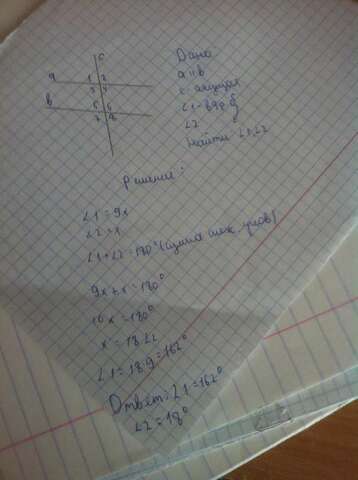 c
Дано
a 1 2
a ıı b
3 4
c - секущая
в
∠1 - в 9 р б
5 6
∠2
7 8
Найти: ∠1, ∠2
Решение:
∠1 = 9x
∠2 = x
∠1 + ∠2 = 180° (сумма смеж. углов)
9x + x = 180°
10x = 180°
x = 18 ∠2
∠1 = 18·9 = 162°
Ответ: ∠1 = 162°
∠2 = 18°